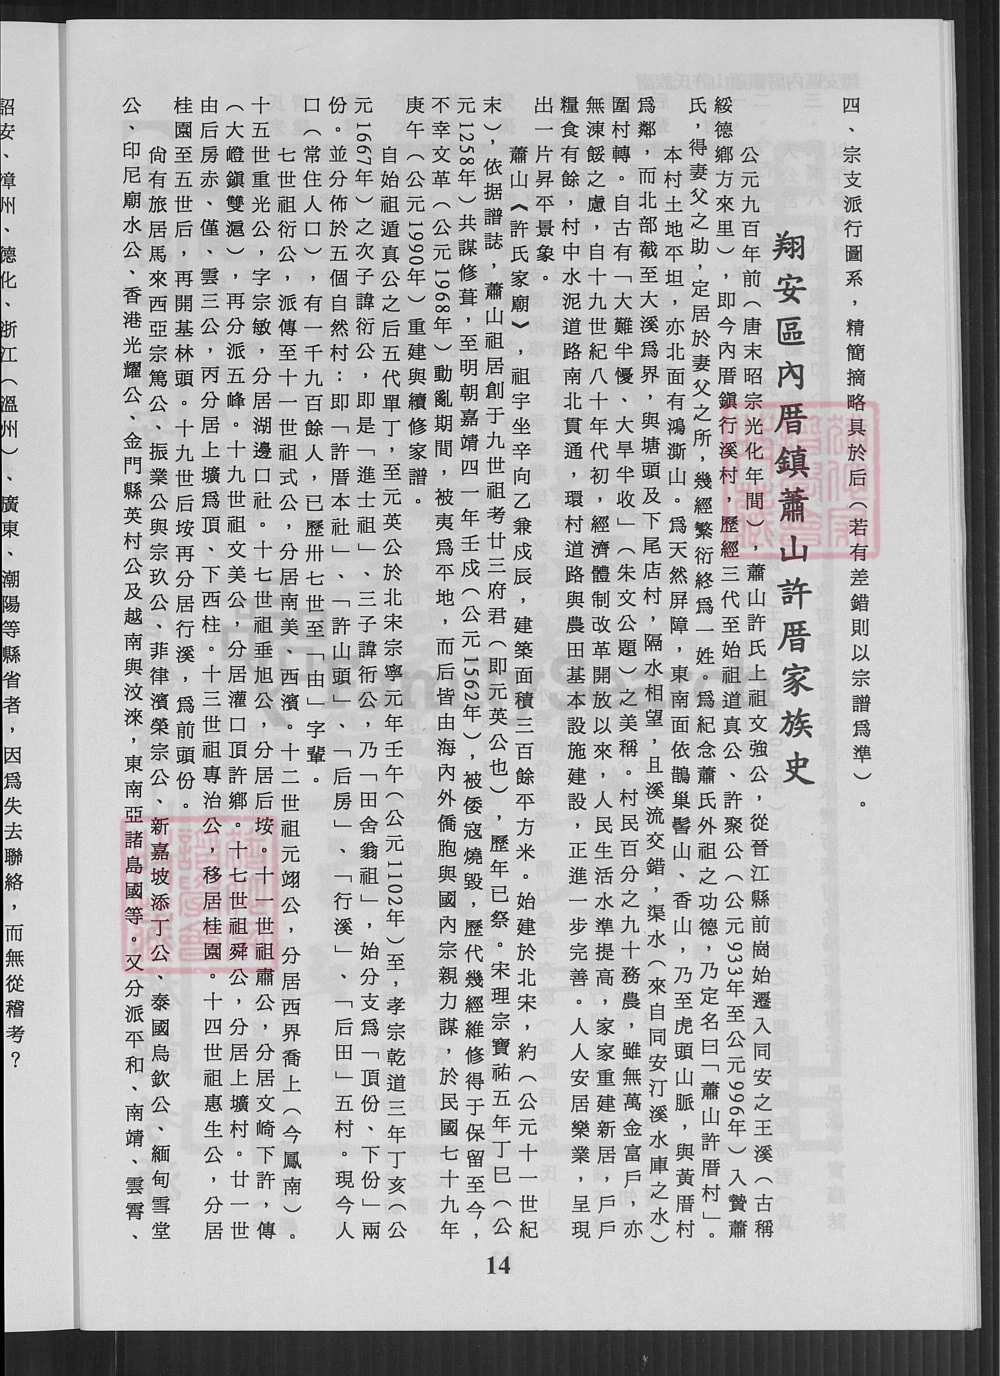 四、宗支派行圖系，精簡摘略具於后（若有差錯則以宗譜爲準）。
翔安區內厝鎮蕭山許厝家族史
公元九百年前（唐末昭宗光化年間），蕭山許氏上祖文強公，從晉江縣前崗始遷入同安之王溪（古稱
綏德鄉方來里），即今內厝鎮行溪村，歷經三代至始祖道真公、許聚公（公元933年至公元996年）入贅蕭
氏，得妻父之助，定居於妻父之所，幾經繁衍終爲一姓。爲紀念蕭氏外祖之功德，乃定名曰「蕭山許厝村」。
本村土地平坦，亦北面有鴻漸山。爲天然屏障，東南面依鵲巢髻山、香山，乃至虎頭山脈，與黃厝村
爲鄰，而北部截至大溪爲界，與塘頭及下尾店村，隔水相望，且溪流交錯，渠水（來自同安汀溪水庫之水）
圍村轉。自古有「大難半懮、大旱半收」（朱文公題）之美稱。村民百分之九十務農，雖無萬金富戶，亦
無凍餒之慮，自十九世紀八十年代初，經濟體制改革開放以來，人民生活水準提高，家家重建新居，戶戶
糧食有餘，村中水泥道路南北貫通，環村道路與農田基本設施建設，正進一步完善。人人安居樂業，呈現
出一片昇平景象。
蕭山《許氏家廟》，祖宇坐辛向乙兼戌辰，建築面積三百餘平方米。始建於北宋，約（公元十一世紀
末），依据譜誌，蕭山祖居創于九世祖考廿三府君（即元英公也），歷年已祭。宋理宗寶祐五年丁巳（公
元1258年）共謀修葺，至明朝嘉靖四一年壬戌（公元1562年），被倭寇燒毀，歷代幾經維修得于保留至今，
不幸文革（公元1968年）動亂期間，被夷爲平地，而后皆由海內外僑胞與國內宗親力謀，於民國七十九年
庚午（公元1990年）重建與續修家譜。
自始祖遁真公之后五代單丁，至元英公於北宋宗寧元年壬午（公元1102年）至，孝宗乾道三年丁亥（公
元1667年）之次子諱衍公，即是「進士祖」、三子諱術公，乃「田舍翁祖」，始分支爲「頂份、下份」兩
份。並分佈於五個自然村：即「許厝本社」、「許山頭」、「后房」、「行溪」、「后田」五村。現今人
口（常住人口），有一千九百餘人，已歷卅七世至「由」字輩。
七世祖衍公，派傳至十一世祖式公，分居南美、西濱。十二世祖元翊公，分居西界喬上（今鳳南）。
十五世重光公，字宗敏，分居湖邊口社。十七世祖垂旭公，分居后垵。十一世祖蕭公，分居文崎下許，傳
（大嶝鎮雙滬），再分派五峰。十九世祖文美公，分居灌口頂許鄉。十七世祖舜公，分居上壙村。廿一世
由后房赤、僅、雲三公，丙分居上壙爲頂、下西柱。十三世祖專治公，移居桂園。十四世祖惠生公，分居
桂園至五世后，再開基林頭。十九世后垵再分居行溪，爲前頭份。
尙有旅居馬來西亞宗篤公、振業公與宗玖公、菲律濱榮宗公、新嘉坡添丁公、泰國烏欽公、緬甸雪堂
公、印尼廟水公、香港光耀公、金門縣英村公及越南與汶淶，東南亞諸島國等。又分派平和、南靖、雲霄、
詔安、漳州、德化、浙江（溫州）、廣東、潮陽等縣省者，因爲失去聯絡，而無從稽考？
14
FamilySearch